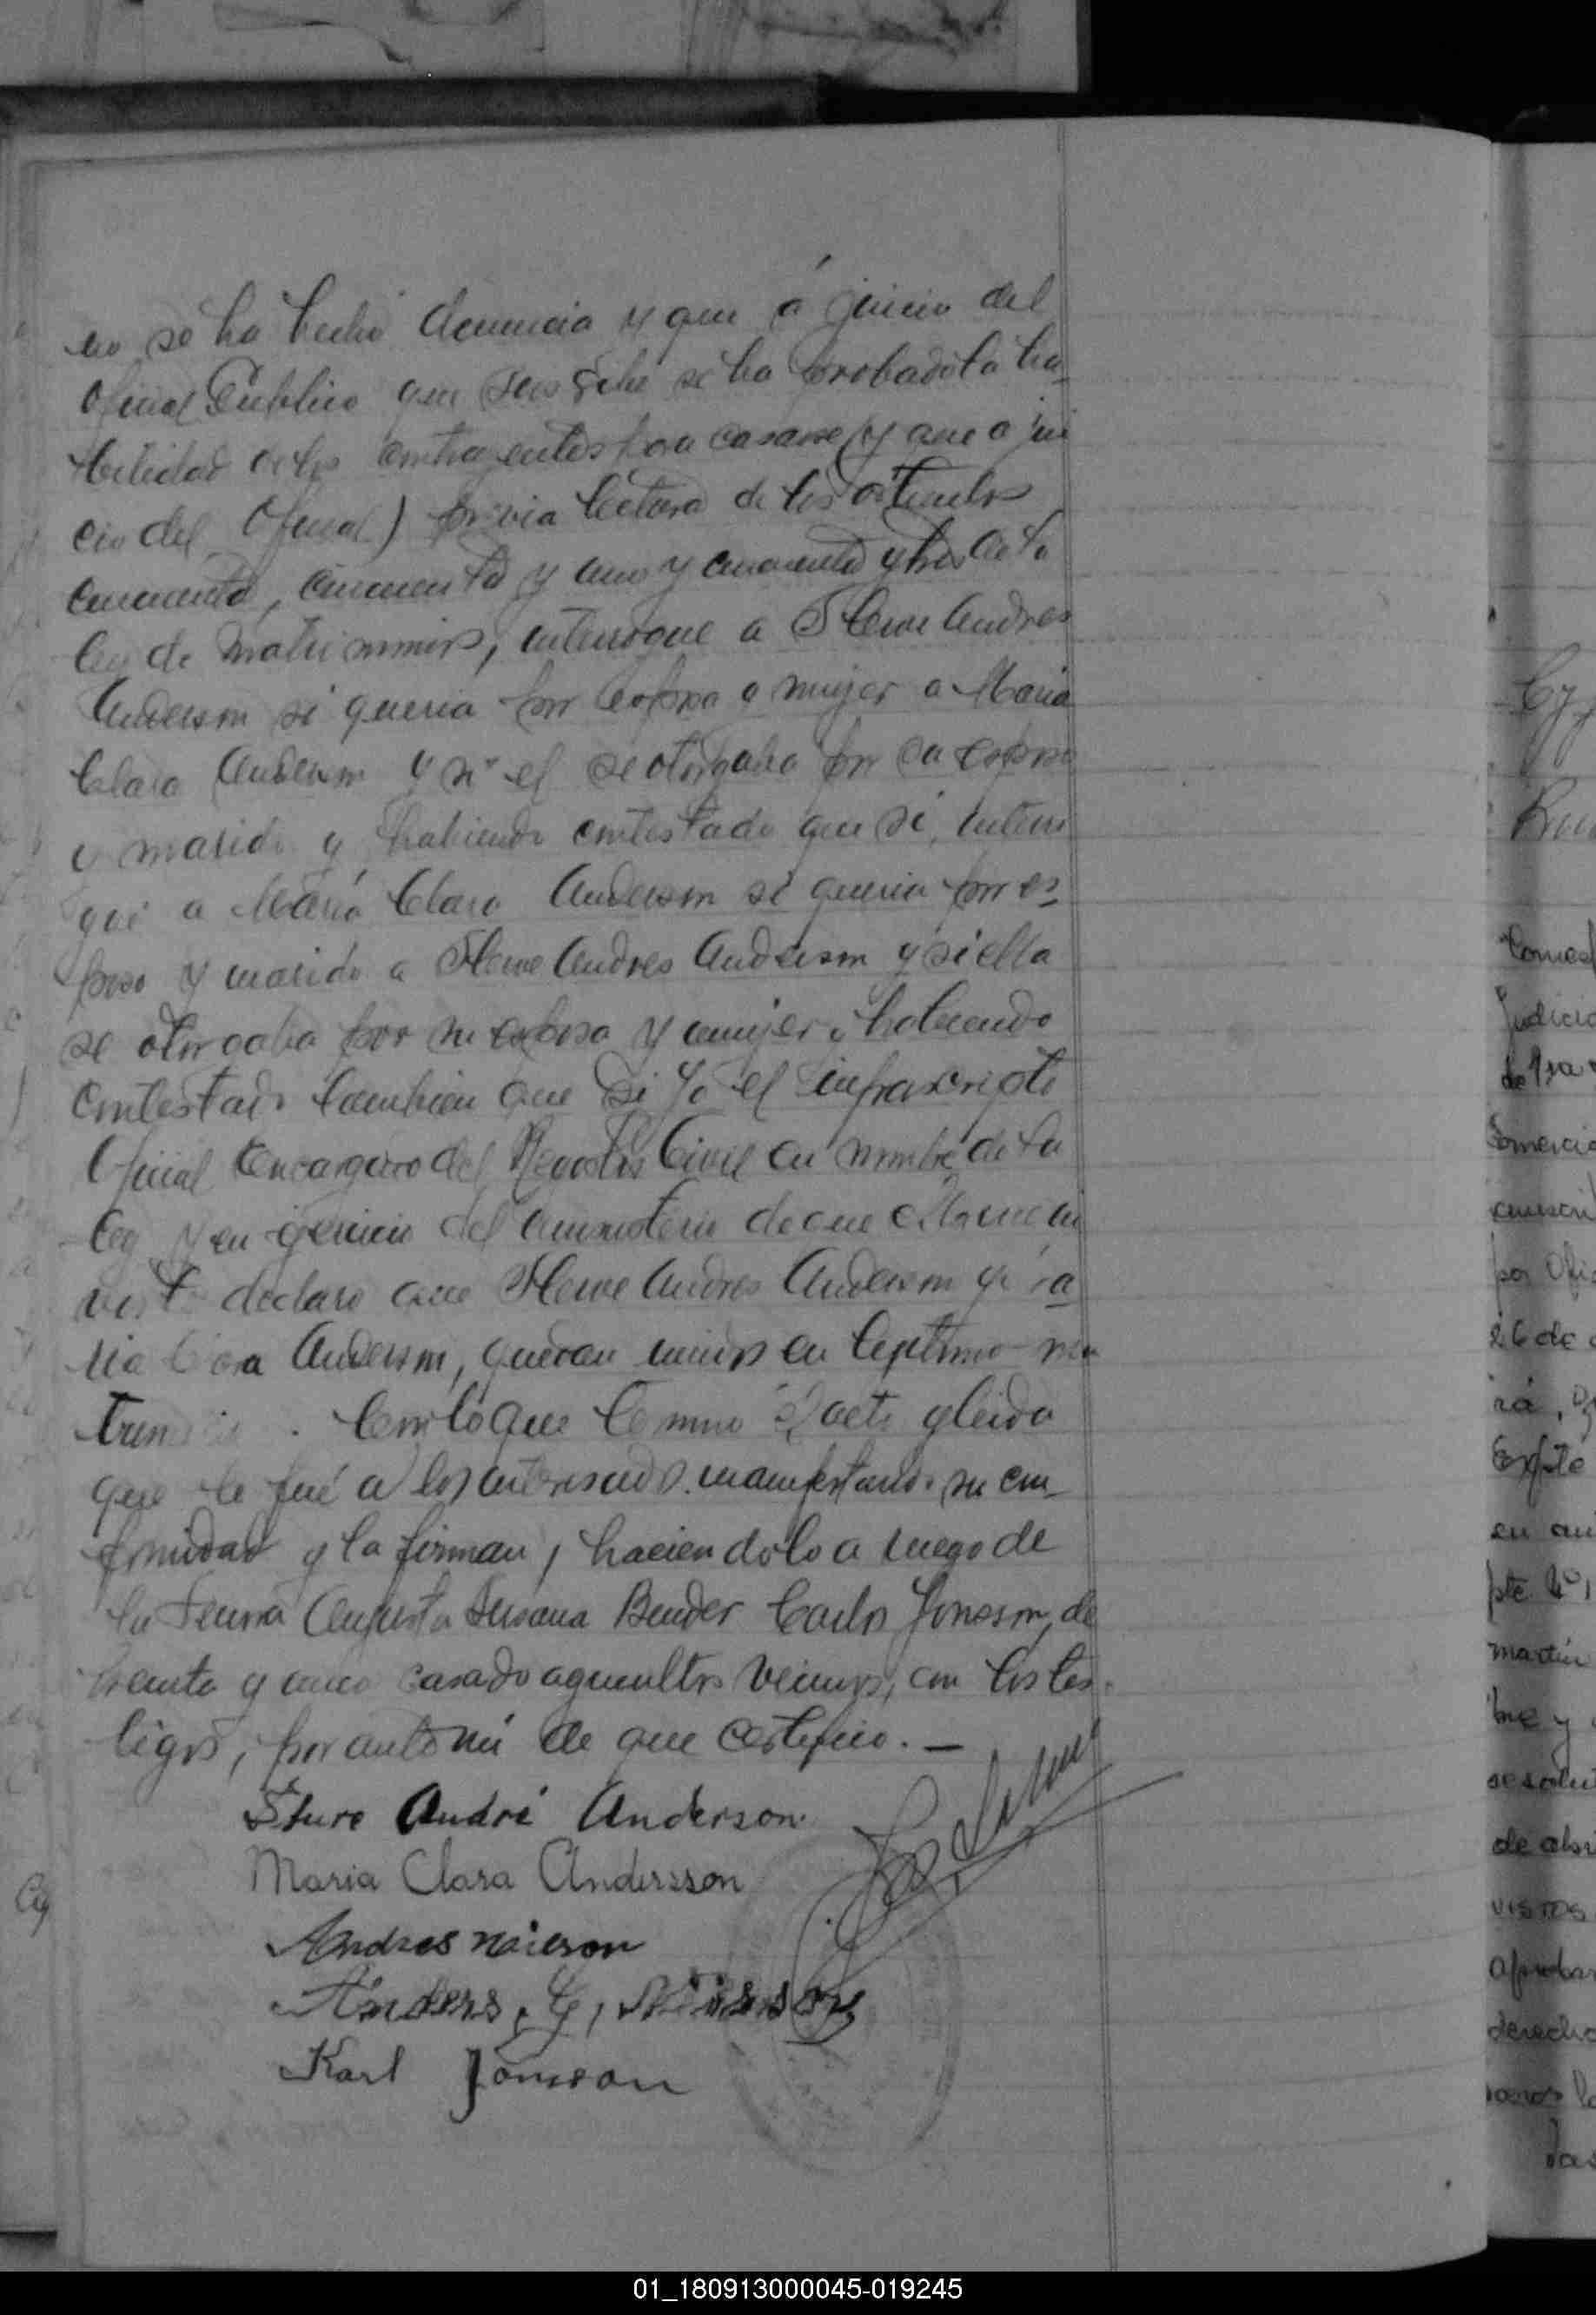 no se ha hecho denuncia y que á juicio del
Oficial Publico que suscribe se ha probado la ha-
bilidad de los contrayentes para casarse (y que a jui
cio del Oficial) previa lectura de los articulos
cincuenta, cincuenta y uno y cincuenta y tres de la
ley de Matrimonios, interrogue a Sture Andres
Anderson si queria por esposa o mujer a Maria
Clara Anderson y si el se otorgaba por su esposo
o marido y habiendo contestado que si, interro
gué a María Clara Anderson si queria por es-
poso y marido a Sture Andres Anderson y si ella
se otorgaba por su esposa y mujer, habiendo
contestado tambien que si Yo el infrascripto
Oficial Encargado del Registro Civil en nombre de la
ley y en ejercicio del ministerio de que
declaro que Sture Andres Anderson y
ria Clara Anderson, quedan unidos en legitimo ma
trimonio. Con lo que termino el acto y leida
que le fué a los interesados manifestaron su con-
formidad y la firman, haciendolo a ruego de
la Señora Augusta Susana Bender Carlos Jonsson, de
treinta y cinco casado agricultor vecinos, con los tes-
tigos, por ante mi de que certifico. —
Sture André Anderson
Maria Clara Andersson
Andres
Anders. G,
Karl Jonsson
Comes
Judicia
de 1ra
Comercia
por Ofi
26 de
rá,
Expte
en au
pte. Nº 1
martin
bre y
resolu
de abri
vistos
aproba
derecho
01_180913000045-019245